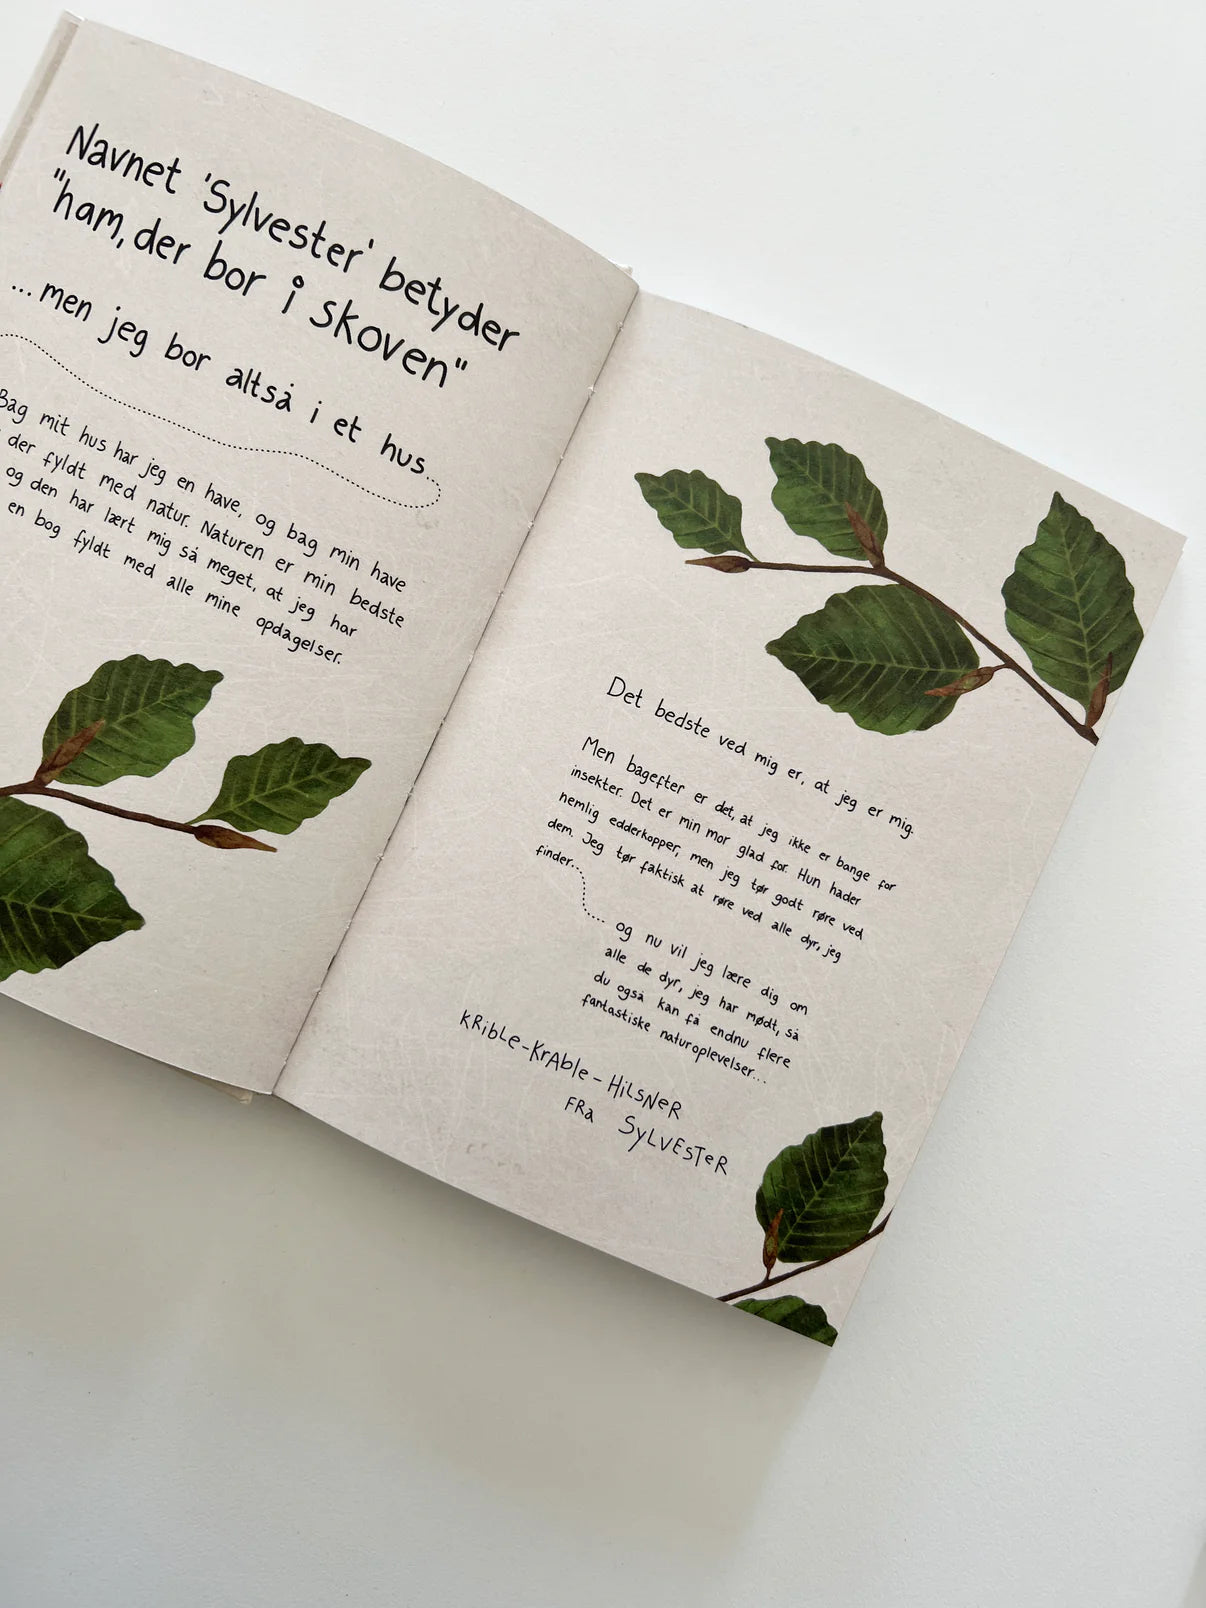 Navnet 'Sylvester' betyder
"ham, der bor i skoven"
...men jeg bor altså i et hus.
Bag mit hus har jeg en have, og bag min have
der fyldt med natur. Naturen er min bedste
og den har lært mig så meget, at jeg har
en bog fyldt med alle mine opdagelser.
Det bedste ved mig er, at jeg er mig.
Men bagefter er det, at jeg ikke er bange for
insekter. Det er min mor glad for. Hun hader
nemlig edderkopper, men jeg tør godt røre ved
dem. Jeg tør faktisk at røre ved alle dyr, jeg
finder...
og nu vil jeg lære dig om
alle de dyr, jeg har mødt, så
du også kan få endnu flere
fantastiske naturoplevelser...
KRibLe-KrAble-HiLSNeR
FRa SyLVEsTeR